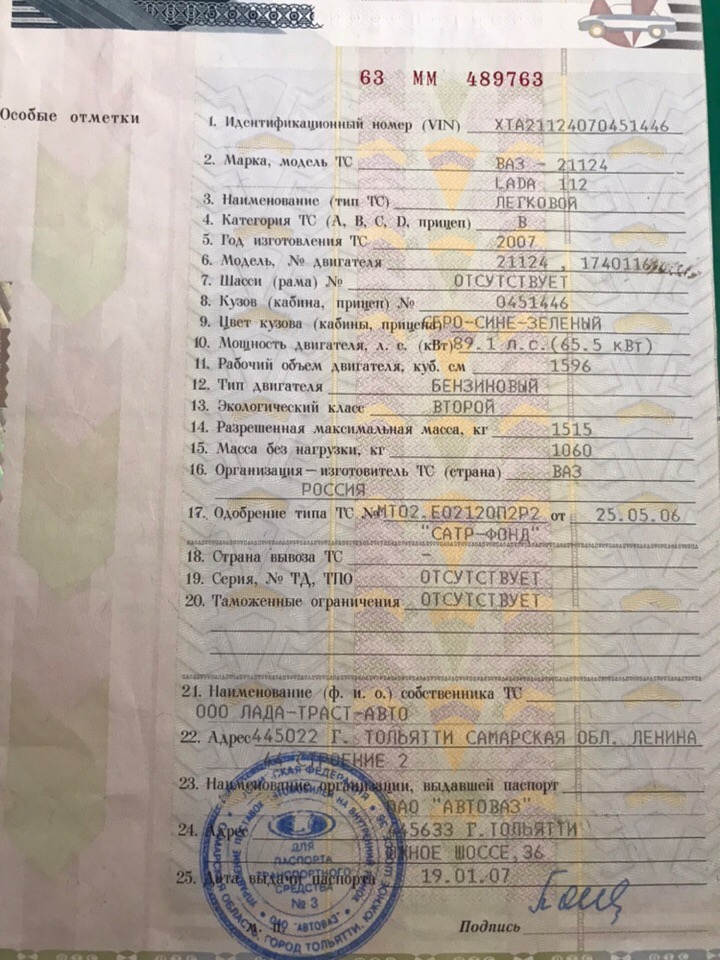 63 ММ 489763
Особые отметки
1. Идентификационный номер (VIN) XTA21124070451446
2. Марка, модель ТС ВАЗ - 21124
LADA 112
3. Наименование (тип ТС) ЛЕГКОВОЙ
4. Категория ТС (А, В, С, D, прицеп) В
5. Год изготовления ТС 2007
6. Модель, № двигателя 21124 ,
7. Шасси (рама) № ОТСУТСТВУЕТ
8. Кузов (кабина, прицеп) № 0451446
9. Цвет кузова (кабины, прицепа) СБРО-СИНЕ-ЗЕЛЕНЫЙ
10. Мощность двигателя, л. с. (кВт) 89.1 л.с.(65.5 кВт)
11. Рабочий объем двигателя, куб. см 1596
12. Тип двигателя БЕНЗИНОВЫЙ
13. Экологический класс ВТОРОЙ
14. Разрешенная максимальная масса, кг 1515
15. Масса без нагрузки, кг 1060
16. Организация—изготовитель ТС (страна) ВАЗ
РОССИЯ
17. Одобрение типа ТС № МТ02.Е02120П2Р2 от 25.05.06
"САТР-ФОНД"
18. Страна вывоза ТС -
19. Серия, № ТД, ТПО ОТСУТСТВУЕТ
20. Таможенные ограничения ОТСУТСТВУЕТ
21. Наименование (ф. и. о.) собственника ТС
ООО ЛАДА-ТРАСТ-АВТО
22. Адрес 445022 Г. ТОЛЬЯТТИ САМАРСКАЯ ОБЛ. ЛЕНИНА
СТРОЕНИЕ 2
23. Наименование организации, выдавшей паспорт
ОАО "АВТОВАЗ"
24. Адрес 445633 Г.ТОЛЬЯТТИ
ЮЖНОЕ ШОССЕ,36
25. Дата выдачи паспорта 19.01.07
М. П. Подпись
ДЛЯ
ПАСПОРТА
ТРАНСПОРТНОГО
СРЕДСТВА
№ 3
ОАО "АВТОВАЗ"
САМАРСКАЯ ОБЛАСТЬ, ГОРОД ТОЛЬЯТТИ, ЮЖНОЕ ШОССЕ, 36